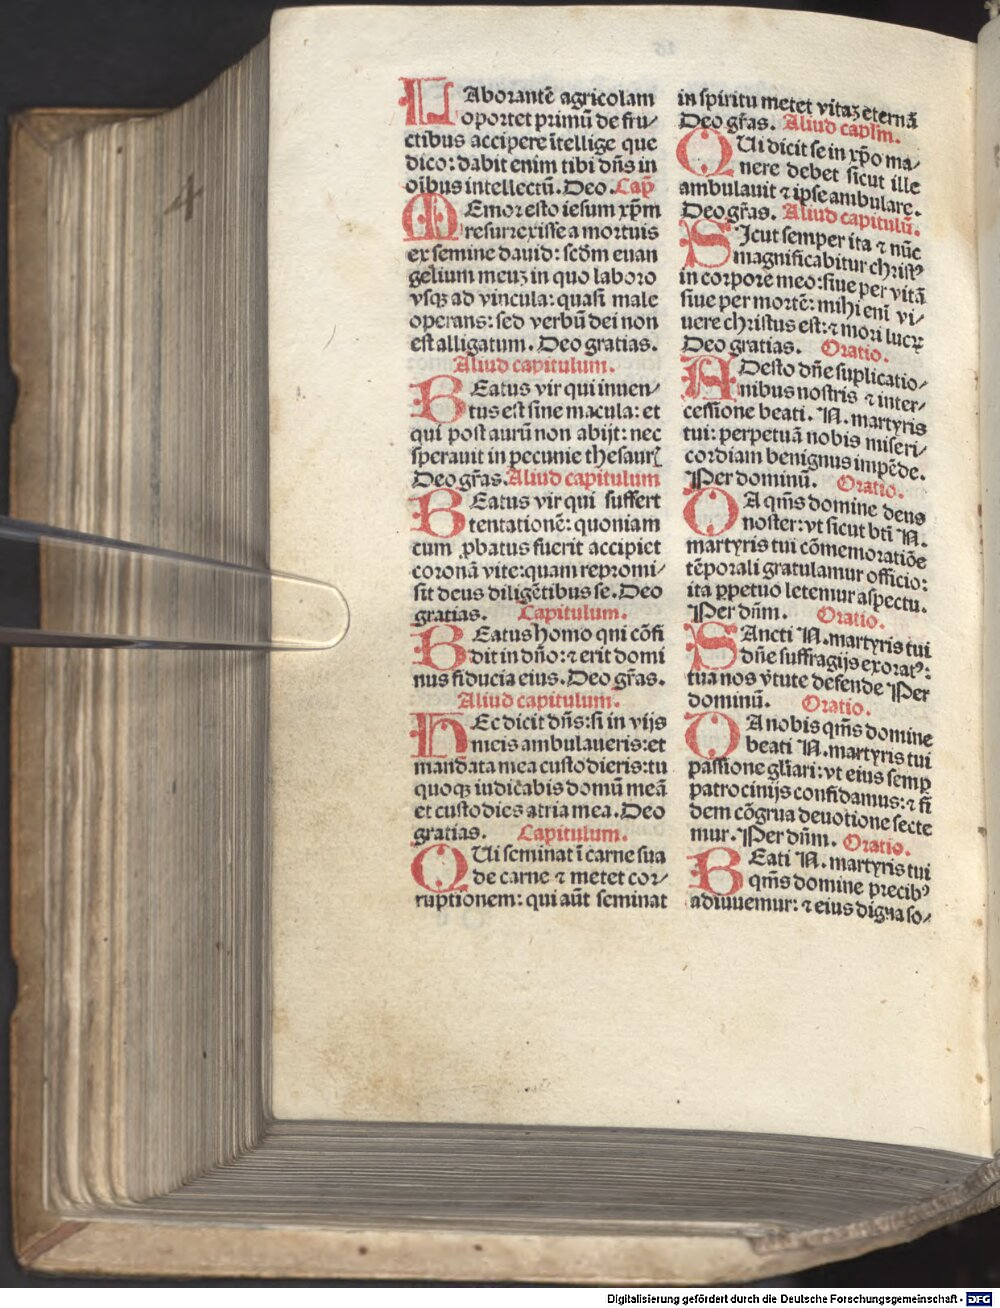 4
LAborantē agricolam
oportet primū de fru/
ctibus accipere ītellige que
dico: dabit enim tibi dn̄s in
oībus intellectū. Deo. Cap̄
MEmor esto iesum xp̄m
resurrexisse a mortuis
ex semine dauid: scd̄m euan
gelium meuꝫ in quo laboro
vsqꝫ ad vincula: quasi male
operans: sed verbū dei non
est alligatum. Deo gratias.
Aliud capitulum.
BEatus vir qui inuen/
tus est sine macula: et
qui post aurū non abijt: nec
sperauit in pecunie thesaurꝭ
Deo gr̄as. Aliud capitulum
BEatus vir qui suffert
tentationē: quoniam
cum ꝓbatus fuerit accipiet
coronā vite: quam repromi/
sit deus diligētibus se. Deo
gratias. Capitulum.
BEatus homo qui cōfi
dit in dn̄o: ⁊ erit domi
nus fiducia eius. Deo gr̄as.
Aliud capitulum.
HEc dicit dn̄s: si in vijs
meis ambulaueris: et
mandata mea custodieris: tu
quoqꝫ iudicabis domū meā
et custodies atria mea. Deo
gratias. Capitulum.
QUi seminat ī carne sua
de carne ⁊ metet cor/
ruptionem: qui aūt seminat
in spiritu metet vitaꝫ eternā
Deo gr̄as. Aliud capl̄m.
QUi dicit se in xp̄o ma/
nere debet sicut ille
ambulauit ⁊ ipse ambulare.
Deo gr̄as. Aliud capitulū.
SIcut semper ita ⁊ nūc
magnificabitur christꝰ
in corpore meo: siue per vitā
siue per mortē: mihi eni vi/
uere christus est: ⁊ mori lucꝝ
Deo gratias. Oratio.
ADesto dn̄e suplicatio/
nibus nostris ⁊ inter/
cessione beati. N. martyris
tui: perpetuā nobis miseri/
cordiam benignus impēde.
Per dominū. Oratio.
DA qm̄s domine deus
noster: vt sicut bt̄i N.
martyris tui cōmemoratiōe
tēporali gratulamur officio:
ita ꝑpetuo letemur aspectu.
Per dn̄m. Oratio.
SAncti N. martyris tui
dn̄e suffragijs exoratꝰ:
tua nos v̄tute defende Per
dominū. Oratio.
DA nobis qm̄s domine
beati N. martyris tui
passione gl̄iari: vt eius semꝑ
patrocinijs confidamus: ⁊ fi
dem cōgrua deuotione secte
mur. Per dn̄m. Oratio.
BEati N. martyris tui
qm̄s domine precibꝰ
adiuuemur: ⁊ eius digna so/
Digitalisierung gefördert durch die Deutsche Forschungsgemeinschaft - DFG